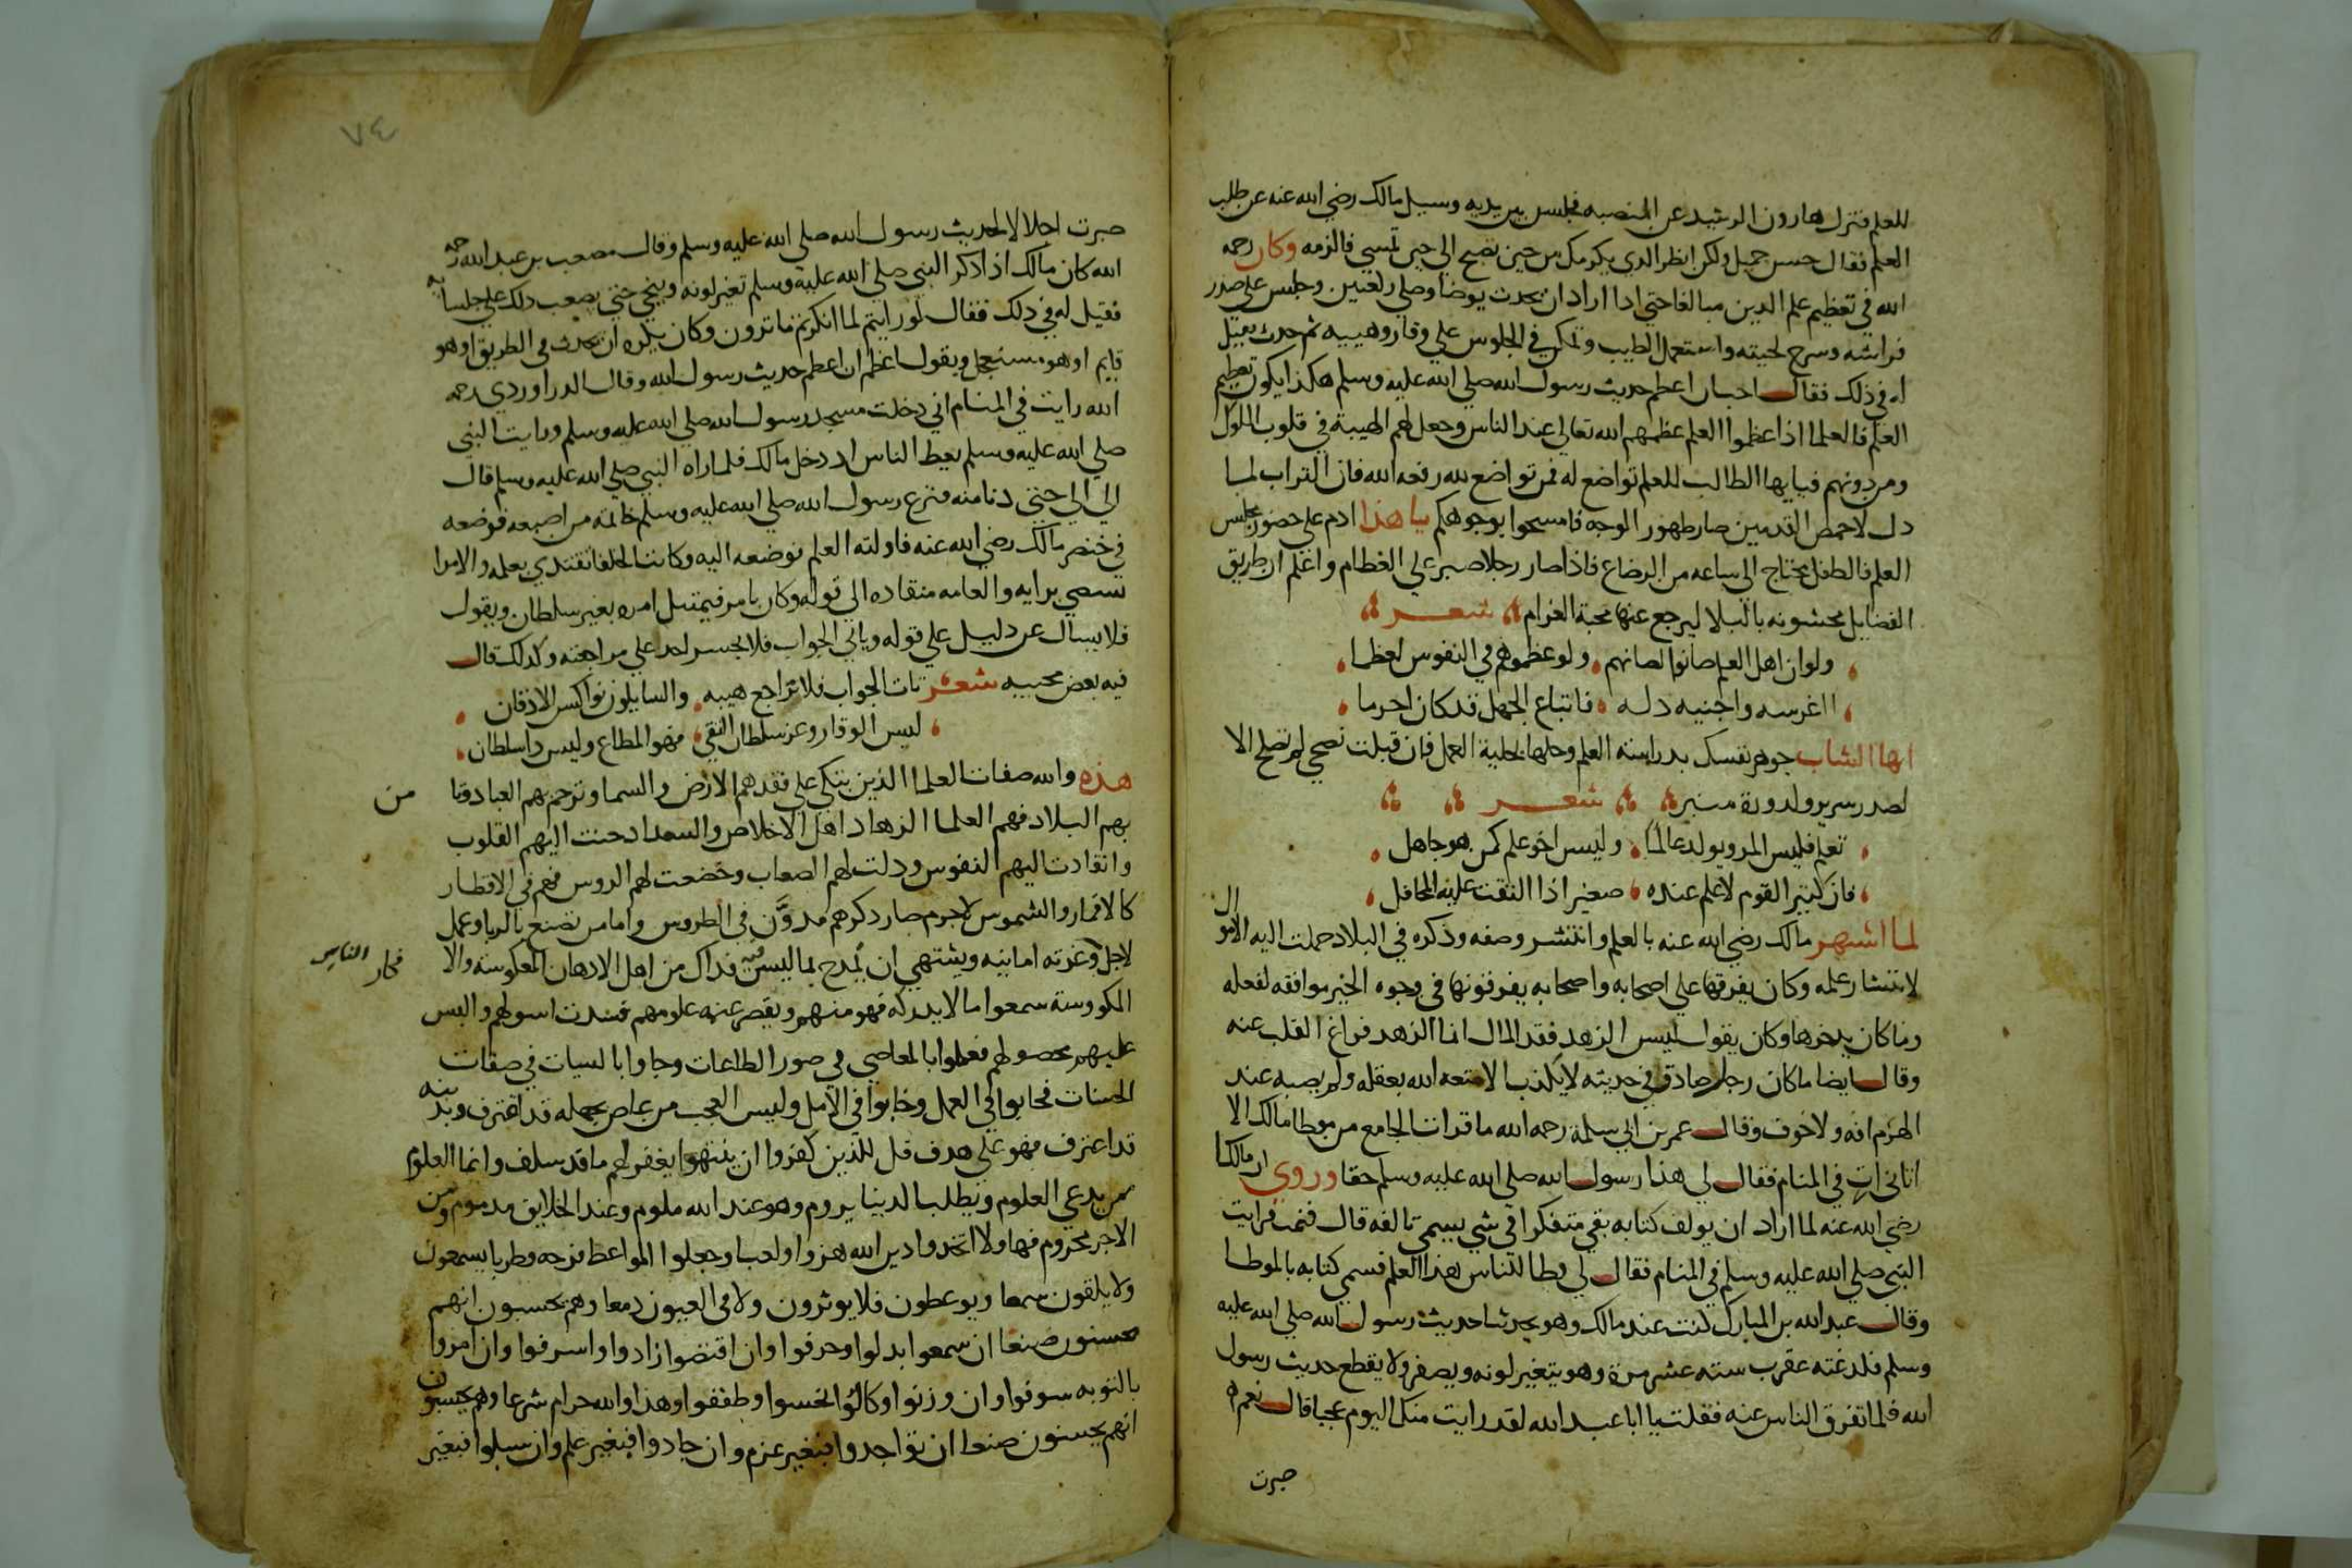 للعلم فنزل هارون الرشيد عن المنصبه فجلس بين يديه وسيل مالك رضي الله عنه عن طلب
العلم فقال حسن جميل ولكن انظر الذي يلزمك من حين تصبح الي حين تمسي فالزمه وكان رحمه
الله في تعظيم علم الدين مبالغا حتي اذا اراد ان يحدث توضا وصلي ركعتين وجلس علي صدر
فراشه وسرح لحيته واستعمل الطيب وتمكن في الجلوس علي وقار وهيبه ثم حدث فقيل
له في ذلك فقال احب ان اعظم حديث رسول الله صلي الله عليه وسلم هكذا يكون تعظيم
العلم فالعلما اذا عظموا العلم عظمهم الله تعالي عند الناس وجعل لهم الهيبة في قلوب الملوك
ومن دونهم فيايها الطالب للعلم تواضع له فمن تواضع لله رفعه الله فان التراب لما
دل لاخمص القدمين صار طهور الوجه فامسحوا بوجوهكم يا هذا ادم علي حضور مجلس
العلم فالطفل يحتاج الي ساعه من الرضاع فاذا صار رجلا صبر علي الفطام واعلم ان طريق
الفضايل محشونه بالبلا ليرجع عنها محبة الغرام شعر
ولو ان اهل العلم صانوا لصانهم ولو عظموه في النفوس لعظما
ااغرسه واجنيه دله فاتباع الجهل قد كان احرما
ايها الشاب جوهر نفسك بدراسته العلم وحلها بحلية العمل فان قبلت نصحي لم تصلح الا
لصدر سرير ولدورة منبر شعر
تعلم فليس المرو يولد عالما وليس اخو علم كمن هو جاهل
فان كبير القوم لا علم عنده صغير اذا التفت عليه المحافل
لما اشهر مالك رضي الله عنه بالعلم وانتشر وصفه وذكره في البلاد حملت اليه الاموال
لانتشار علمه وكان يفرقها علي اصحابه واصحابه يفرقونها في وجوه الخير موافقه لفعله
وما كان يدخرها وكان يقول ليس الزهد فقد المال انما الزهد فراغ القلب عنه
وقال ايضا ما كان رجل صادق في حديثه لا يكذب الا متعه الله بعقله ولم يصبه عند
الهرم افه ولا خوف وقال عمر بن ابي سلمة رحمه الله ما قرات الجامع من موطا مالك الا
اتاني ات في المنام فقال لي هذا رسول الله صلي الله عليه وسلم حقا وروي ان مالكا
رضي الله عنه لما اراد ان يولف كتابه بقي متفكرا في شي يسمي تالفه قال فنمت فرايت
النبي صلي الله عليه وسلم في المنام فقال لي وطا للناس هذا العلم فسمي كتابه بالموطا
وقال عبد الله بن المبارك كنت عند مالك وهو يحدثنا حديث رسول الله صلي الله عليه
وسلم فلدغته عقرب سته عشر مرة وهو يتغير لونه ويصفر ولا يقطع حديث رسول
الله فلما تفرق الناس عنه فقلت يا ابا عبد الله لقد رايت منك اليوم عجبا قال نعم
صبرت
٧٤
صبرت اجلالا لحديث رسول الله صلي الله عليه وسلم وقال مصعب بن عبد الله رحمه
الله كان مالك اذا ذكر النبي صلي الله عليه وسلم تغير لونه وينحي حتي يصعب ذلك علي جلسايه
فقيل له في ذلك فقال لو رايتم لما انكرتم ما ترون وكان يكره ان يحدث في الطريق او هو
قايم او هو مستعجل ويقول اعظم ان اعظم حديث رسول الله وقال الدراوردي رحمه
الله رايت في المنام اني دخلت مسجد رسول الله صلي الله عليه وسلم ورايت النبي
صلي الله عليه وسلم يعظ الناس اد دخل مالك فلما راه النبي صلي الله عليه وسلم قال
الي الي حتي دنا منه فنزع رسول الله صلي الله عليه وسلم خاتمه من اصبعه فوضعه
في خنصر مالك رضي الله عنه فاولته العلم بوضعه اليه وكانت الخلفا تقتدي بعلمه والامرا
تستضي برايه والعامه منقاده الي قوله وكان يامر فيمتثل امره بغير سلطان ويقول
فلا يسال عن دليل علي قوله وياتي الجواب فلا يجسر احد علي مراجعته وكذلك قال
فيه بعض محبيه شعر تاتي الجواب فلا تراجع هيبه والسايلون نواكس الاذقان
ليس الوقار وعز سلطان التقي فهو المطاع وليس ذا سلطان
هذه والله صفات العلما الذين يبكي علي فقدهم الارض والسما وترحم بهم العباد وتا من
بهم البلاد فهم العلما الزهاد اهل الاخلاص والسعدا دحنت اليهم القلوب
وانقادت اليهم النفوس ودلت لهم الصعاب وخضعت لهم الروس فهم في الاقطار
كالاقمار والشموس لاجرم صار ذكرهم مدون في الطروس واما من تصنع بالريا وعمل
لاجل وغرته امانيه ويشتهي ان يمدح بما ليس فيه فذاك من اهل الادهان المعكوسه والا فكار الناس
المكووسة سمعوا ما لا يدركه فهو منهم ويقصر عنه علومهم ففسدت اسولهم والبس
عليهم محصولهم فعملوا بالمعاصي في صور الطاعات وجاوا بالسيات في صفات
الحسنات فخابوا في العمل وخابوا في الامل وليس العجب من عاص بجهله قد اعترف وبذنبه
قد اعترف فهو علي هدف قل للذين كفروا ان ينتهوا يغفر لهم ما قد سلف وانما العلوم
من يدعي العلوم ويطلب الدنيا يروم وهو عند الله ملوم وعند الخلايق مدموم ومن
الاجر محروم فهاولا اتخدوا دين الله هزوا ولعبا وجعلوا المواعظ فرجه وطربا يسمعون
ولا يلقون سمعا ويوعظون فلا يوثرون ولا في العيون دمعا وهم يحسبون انهم
محسنون صنعا ان سمعوا بدلوا وحرفوا وان اقتضوا زادوا واسرفوا وان امروا
بالتوبه سوفوا وان وزنوا وكالوا بخسوا وطففوا وهذا والله حرام شرعا وهم يحسبون
انهم يحسنون صنعا ان تواجدوا فبغير عزم وان جادوا فبغير علم وان سيلوا فبغير